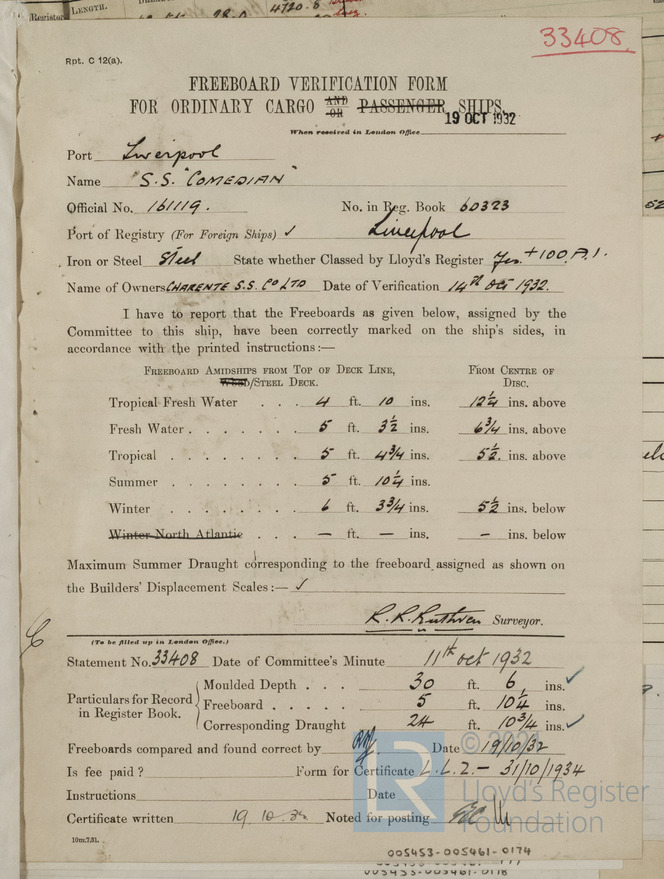 LENGTH.
4720.6
Register
33408.
Rpt. C 12(a).
FREEBOARD VERIFICATION FORM
FOR ORDINARY CARGO AND OR PASSENGER SHIPS.
19 OCT 1932
When received in London Office
Port Liverpool
Name "S.S. "COMEDIAN"
Official No. 161119. No. in Reg. Book 60323
Port of Registry (For Foreign Ships) ✓ Liverpool
Iron or Steel Steel State whether Classed by Lloyd's Register Yes. +100.A.1.
Name of Owners CHARENTE S.S. Co LTD Date of Verification 14th Oct 1932.
I have to report that the Freeboards as given below, assigned by the
Committee to this ship, have been correctly marked on the ship's sides, in
accordance with the printed instructions:—
FREEBOARD AMIDSHIPS FROM TOP OF DECK LINE, FROM CENTRE OF
WOOD/STEEL DECK. DISC.
Tropical Fresh Water . . . 4 ft. 10 ins. 12¼ ins. above
Fresh Water . . . . . . . 5 ft. 3½ ins. 6¾ ins. above
Tropical . . . . . . . . 5 ft. 4¾ ins. 5½ ins. above
Summer . . . . . . . . 5 ft. 10¼ ins.
Winter . . . . . . . . 6 ft. 3¾ ins. 5½ ins. below
Winter North Atlantic . . . — ft. — ins. — ins. below
Maximum Summer Draught corresponding to the freeboard assigned as shown on
the Builders' Displacement Scales:— ✓
R. R. Ruthven Surveyor.
(To be filled up in London Office.)
Statement No. 33408 Date of Committee's Minute 11th Oct 1932
Particulars for Record in Register Book.
Moulded Depth . . . 30 ft. 6 ins. ✓
Freeboard . . . . . 5 ft. 10¼ ins.
Corresponding Draught 24 ft. 10¾ ins. ✓
Freeboards compared and found correct by Date 19/10/32
Is fee paid? Form for Certificate L.L.2. — 31/10/1934
Instructions Date
Certificate written 19.10.32 Noted for posting
10m:7.31.
© 2021
LR
Lloyd's Register
Foundation
005453-005461-0174